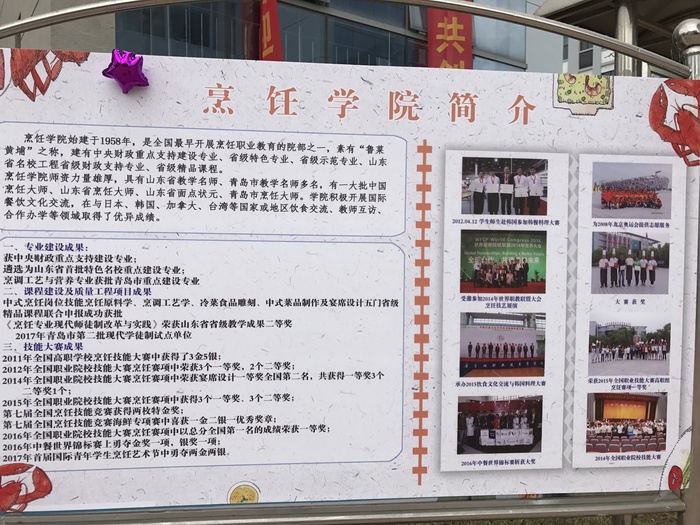 共
烹饪学院简介
烹饪学院始建于1958年，是全国最早开展烹饪职业教育的院部之一，素有“鲁菜
黄埔”之称，建有中央财政重点支持建设专业、省级特色专业、省级示范专业、山东
省名校工程省级财政支持专业、省级精品课程。
烹饪学院师资力量雄厚，具有山东省教学名师、青岛市教学名师多名，有一大批中国
烹饪大师、山东省烹饪大师、山东省面点状元、青岛市烹饪大师。学院积极开展国际
餐饮文化交流，在与日本、韩国、加拿大、台湾等国家或地区饮食交流、教师互访、
合作办学等领域取得了优异成绩。
一、专业建设成果：
获中央财政重点支持建设专业；
遴选为山东省首批特色名校重点建设专业；
烹调工艺与营养专业获批青岛市重点建设专业
二、课程建设及质量工程项目成果
中式烹饪岗位技能烹饪原料学、烹调工艺学、冷菜食品雕刻、中式菜品制作及宴席设计五门省级
精品课程联合申报成功获批
《烹饪专业现代师徒制改革与实践》荣获山东省省级教学成果二等奖
2017年青岛市第二批现代学徒制试点单位
三、技能大赛成果
2011年全国高职学校烹饪技能大赛中获得了3金5银；
2012年全国职业院校技能大赛烹饪赛项中荣获3个一等奖，2个二等奖；
2014年全国职业院校技能大赛烹饪赛项中荣获宴席设计一等奖全国第二名，共获得一等奖3个
二等奖1个；
2015年全国职业院校技能大赛烹饪赛项中获得3个一等奖、3个二等奖；
第七届全国烹饪技能竞赛获得两枚特金奖；
第七届全国烹饪技能竞赛海鲜专项赛中喜获一金二银一优秀奖章；
2016年全国职业院校技能大赛烹饪赛项中以总分全国第一名的成绩荣获一等奖；
2016年中餐世界锦标赛上勇夺金奖一项，银奖一项；
2017年首届国际青年学生烹饪艺术节中勇夺两金两银。
2012.04.12 学生师生赴韩国参加韩餐料理大赛
WFCP World Congress 2014
受邀参加2014年世界职教联盟大会
烹饪技艺展演
承办2015饮食文化交流与韩国料理大赛
2016年中餐世界锦标赛斩获大奖
为2008年北京奥运会提供志愿服务
大赛获奖
荣获2015年全国职业技能大赛高职组
烹饪赛项一等奖
2014年全国职业院校技能大赛